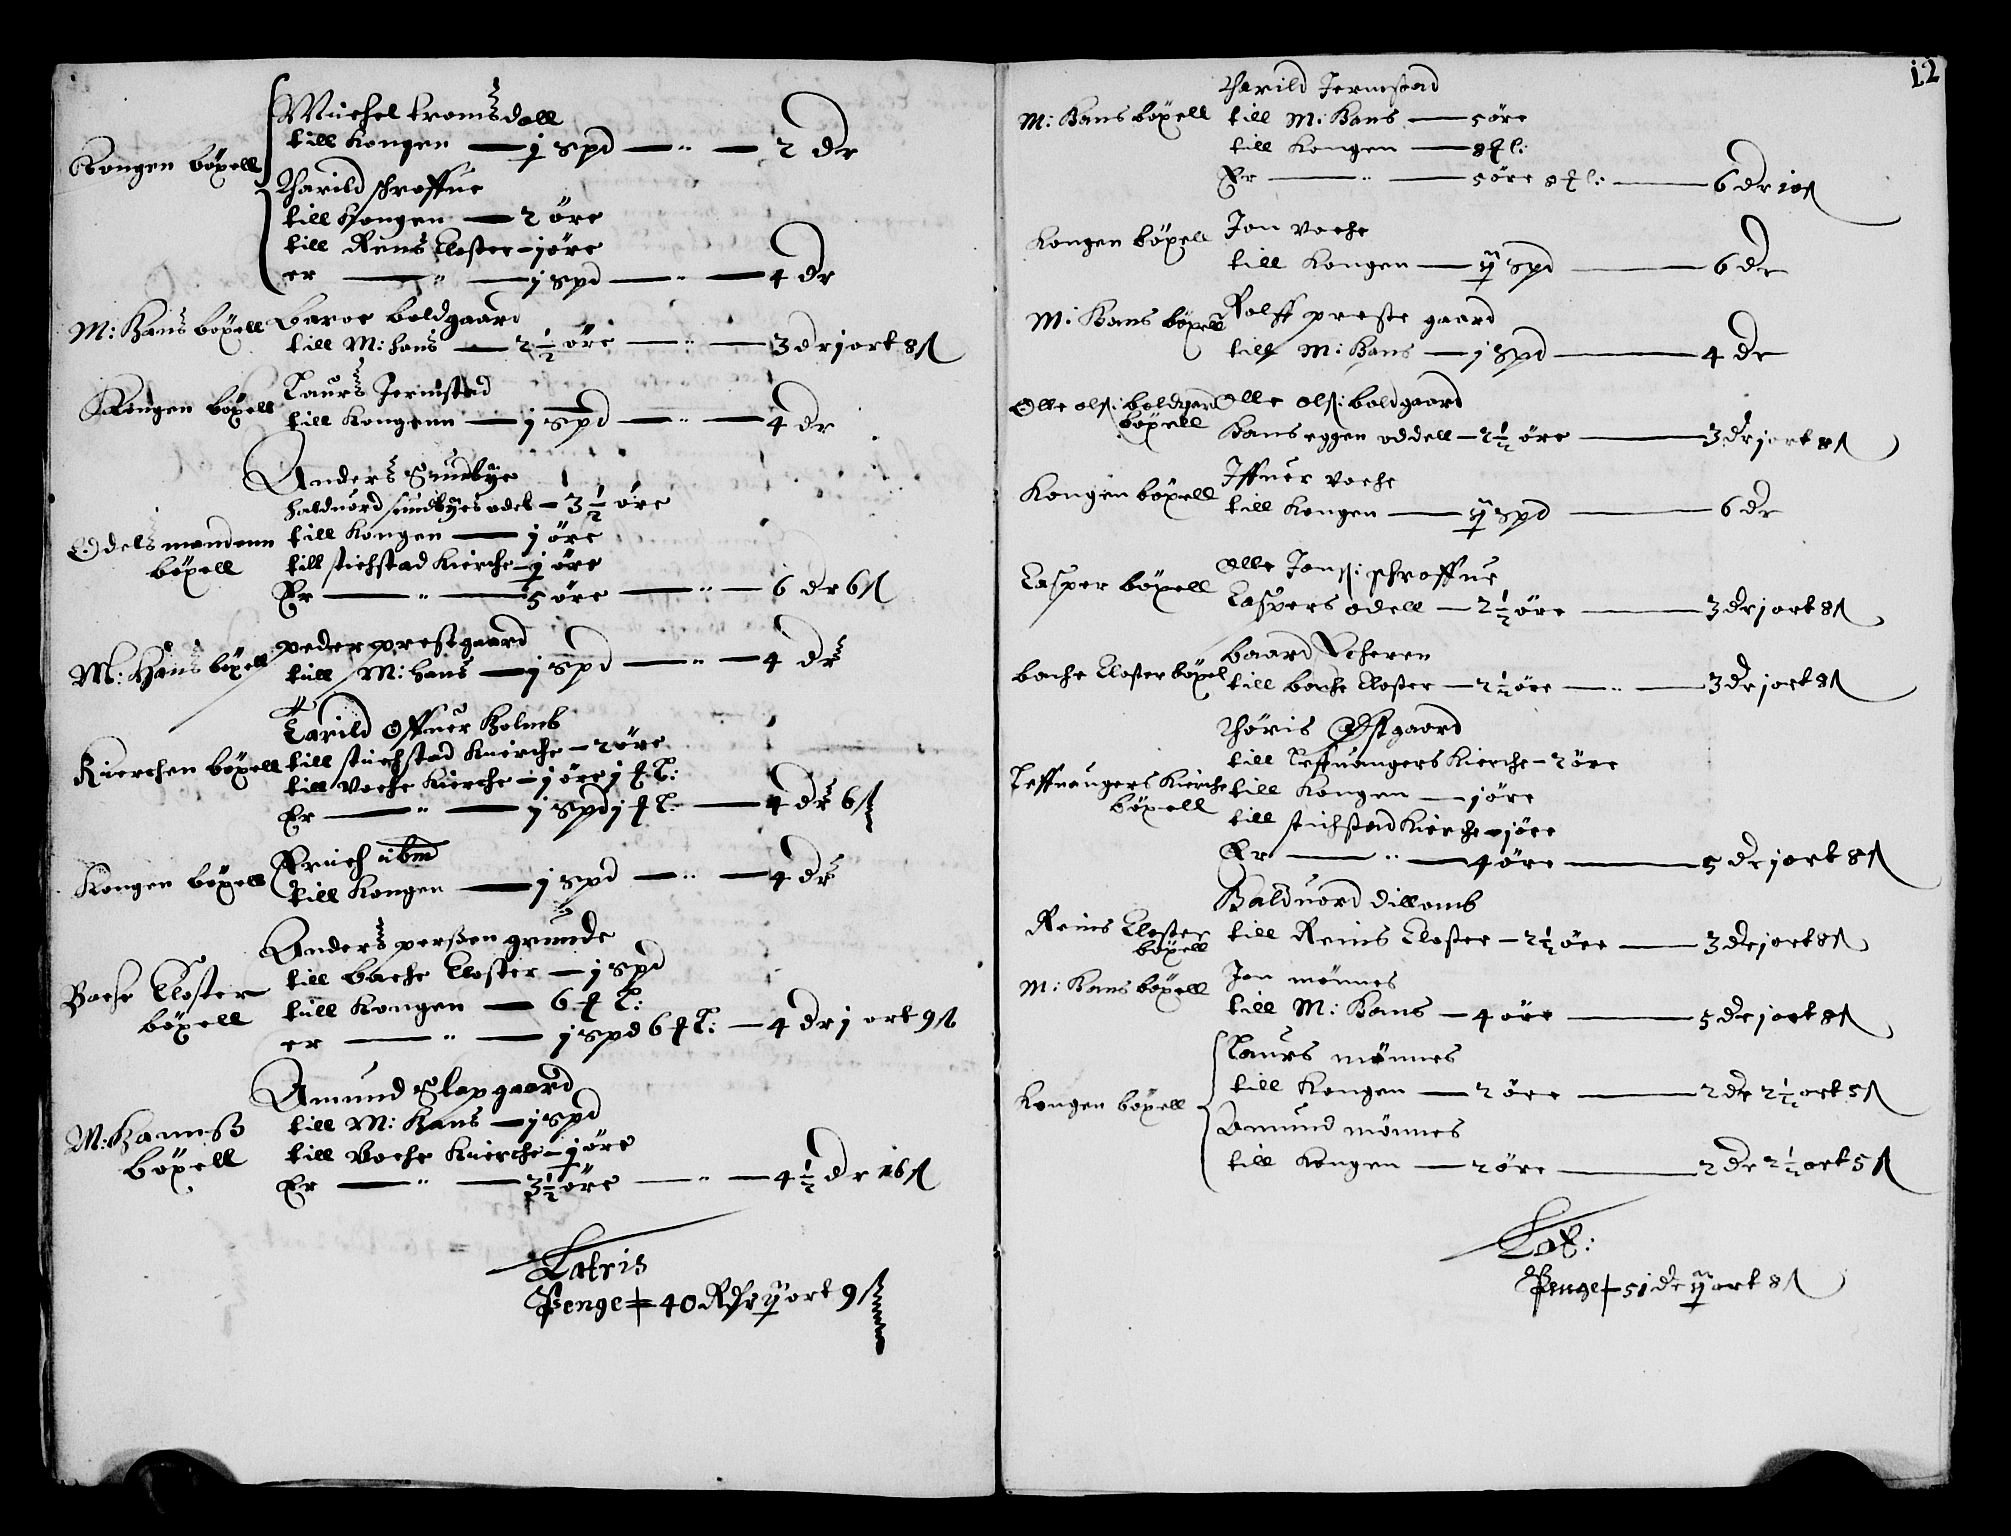 Kongen böxell
Michel tromsdall
till Kongen — 1 spd — " — 2 dr
Tharild schroffue
till Kongen — 2 öre
till Reins Closter — 1 öre
er — " — 1 spd — " — 4 dr
M: Hans böxell
baroe boldgaard
till M: hans — 2 ½ öre — " — 3 dr 1 ort 8 ſ
Kongen böxell
Laurs Jermstad
till Kongenn — 1 spd — " — 4 dr
Odels mandenn
böxell
Anders Sundbye
halduord sundbyes odel — 3 ½ öre
till Kongen — 1 öre
till stichstad Kierche — 1 öre
Er — " — 5 öre — " — 6 dr 6 ſ
M: Hans böxell
peder prestgaard
till M: hans — 1 spd — " — 4 dr
Kierchen böxell
Tarild Offuer Holmb
till stichstad Kierche — 2 öre
till Voche Kierche — 1 öre 1 ꝗ l:
Er — " — 1 spd 1 ꝗ l: — 4 dr 6 ſ
Kongen böxell
Erich ibm
till Kongen — 1 spd — " — 4 dr
Bache Closter
böxell
Anders perßen grunde
till bache Closter — 1 spd
till Kongen — 6 ꝗ l:
er — " — 1 spd 6 ꝗ l: — 4 dr 1 ort 9 ſ
M: Hannß
böxell
Amund Slapgaard
till M: Hans — 1 spd
till Voche Kierche — 1 öre
Er — " — 3 ½ öre — " — 4 ½ dr 16 ſ
Latris
Penge 40 Rdr ij ort 9 ſ
12
M: Hans böxell
Tharild Jermstad
till M: Hans — 5 öre
till Kongen — 8 ꝗ l:
Er — " — 5 öre 8 ꝗ l: — 6 dr 10 ſ
Kongen böxell
Jon Voche
till Kongen — ij spd — 6 dr
M: Hans böxell
Rolff preste gaard
till M: Hans — 1 spd — 4 dr
Olle olſ: boldgard
böxell
Olle olſ: boldgaard
Hans eggen oddell — 2 ½ öre — 3 dr 1 ort 8 ſ
Kongen böxell
Iffuer Voche
till Kongen — ij spd — 6 dr
Casper böxell
Olle Jonſ: schroffue
Caspers odell — 2 ½ öre — 3 dr 1 ort 8 ſ
bache Closter böxel
baard Scheren
till bache Closter — 2 ½ öre — " — 3 dr 1 ort 8 ſ
Leffuangers Kierche
böxell
Thöris Østgaard
till Leffuangers Kierche — 2 öre
till Kongen — 1 öre
till stichstad Kierche — 1 öre
Er — " — 4 öre — 5 dr 1 ort 8 ſ
Reins Closter
böxell
Halduord dillomb
till Reins Closter — 2 ½ öre — 3 dr 1 ort 8 ſ
M: Hans böxell
Jon mönnes
till M: Hans — 4 öre — 5 dr 1 ort 8 ſ
Kongen böxell
Laurs mönnes
till Kongen — 2 öre — 2 dr 2 ½ ort 5 ſ
Omund mönnes
till Kongen — 2 öre — 2 dr 2 ½ ort 5 ſ
Lat:
Penge 51 dr ij ort 8 ſ